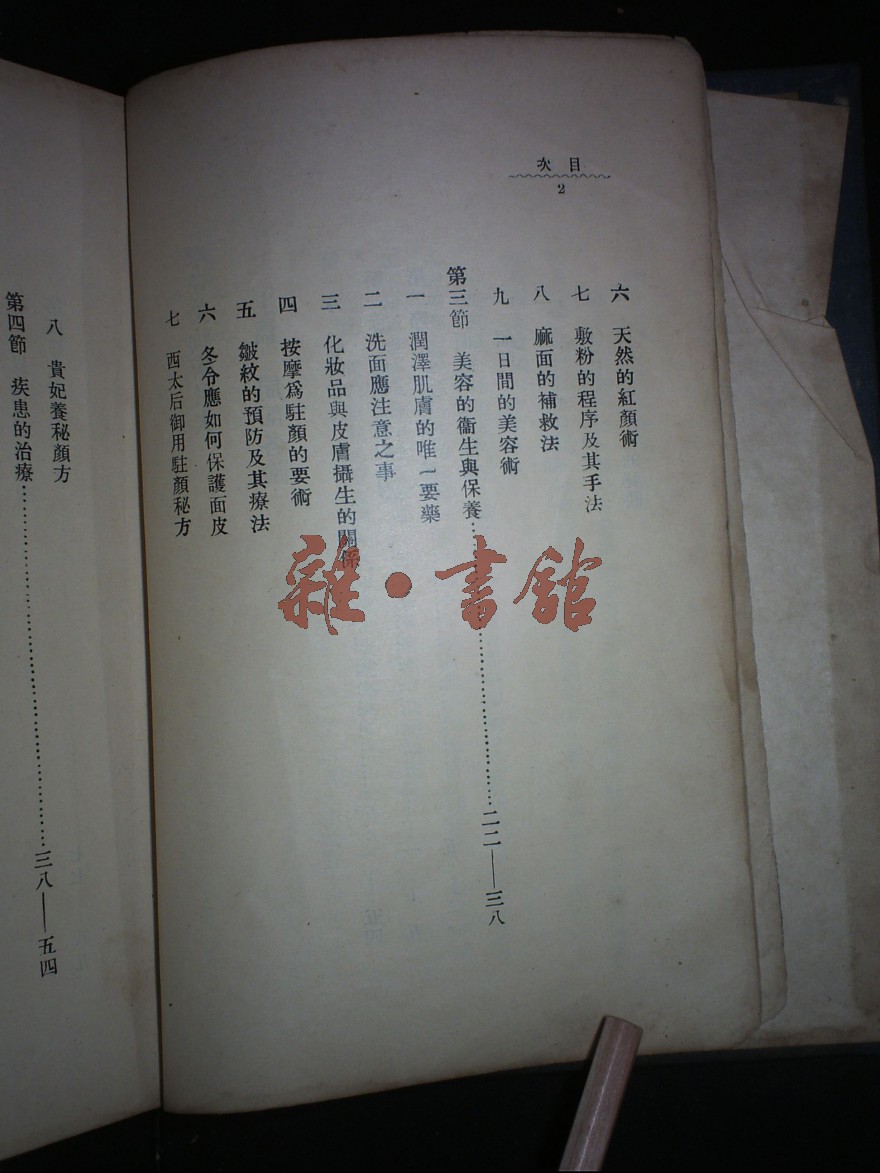 次目
2
六　天然的紅顏術
七　敷粉的程序及其手法
八　麻面的補救法
九　一日間的美容術
第三節　美容的衞生與保養……二二——三八
一　潤澤肌膚的唯一要藥
二　洗面應注意之事
三　化妝品與皮膚攝生的關係
四　按摩爲駐顏的要術
五　皺紋的預防及其療法
六　冬令應如何保護面皮
七　西太后御用駐顏秘方
八　貴妃養秘顏方
第四節　疾患的治療……三八——五四
雜·書館